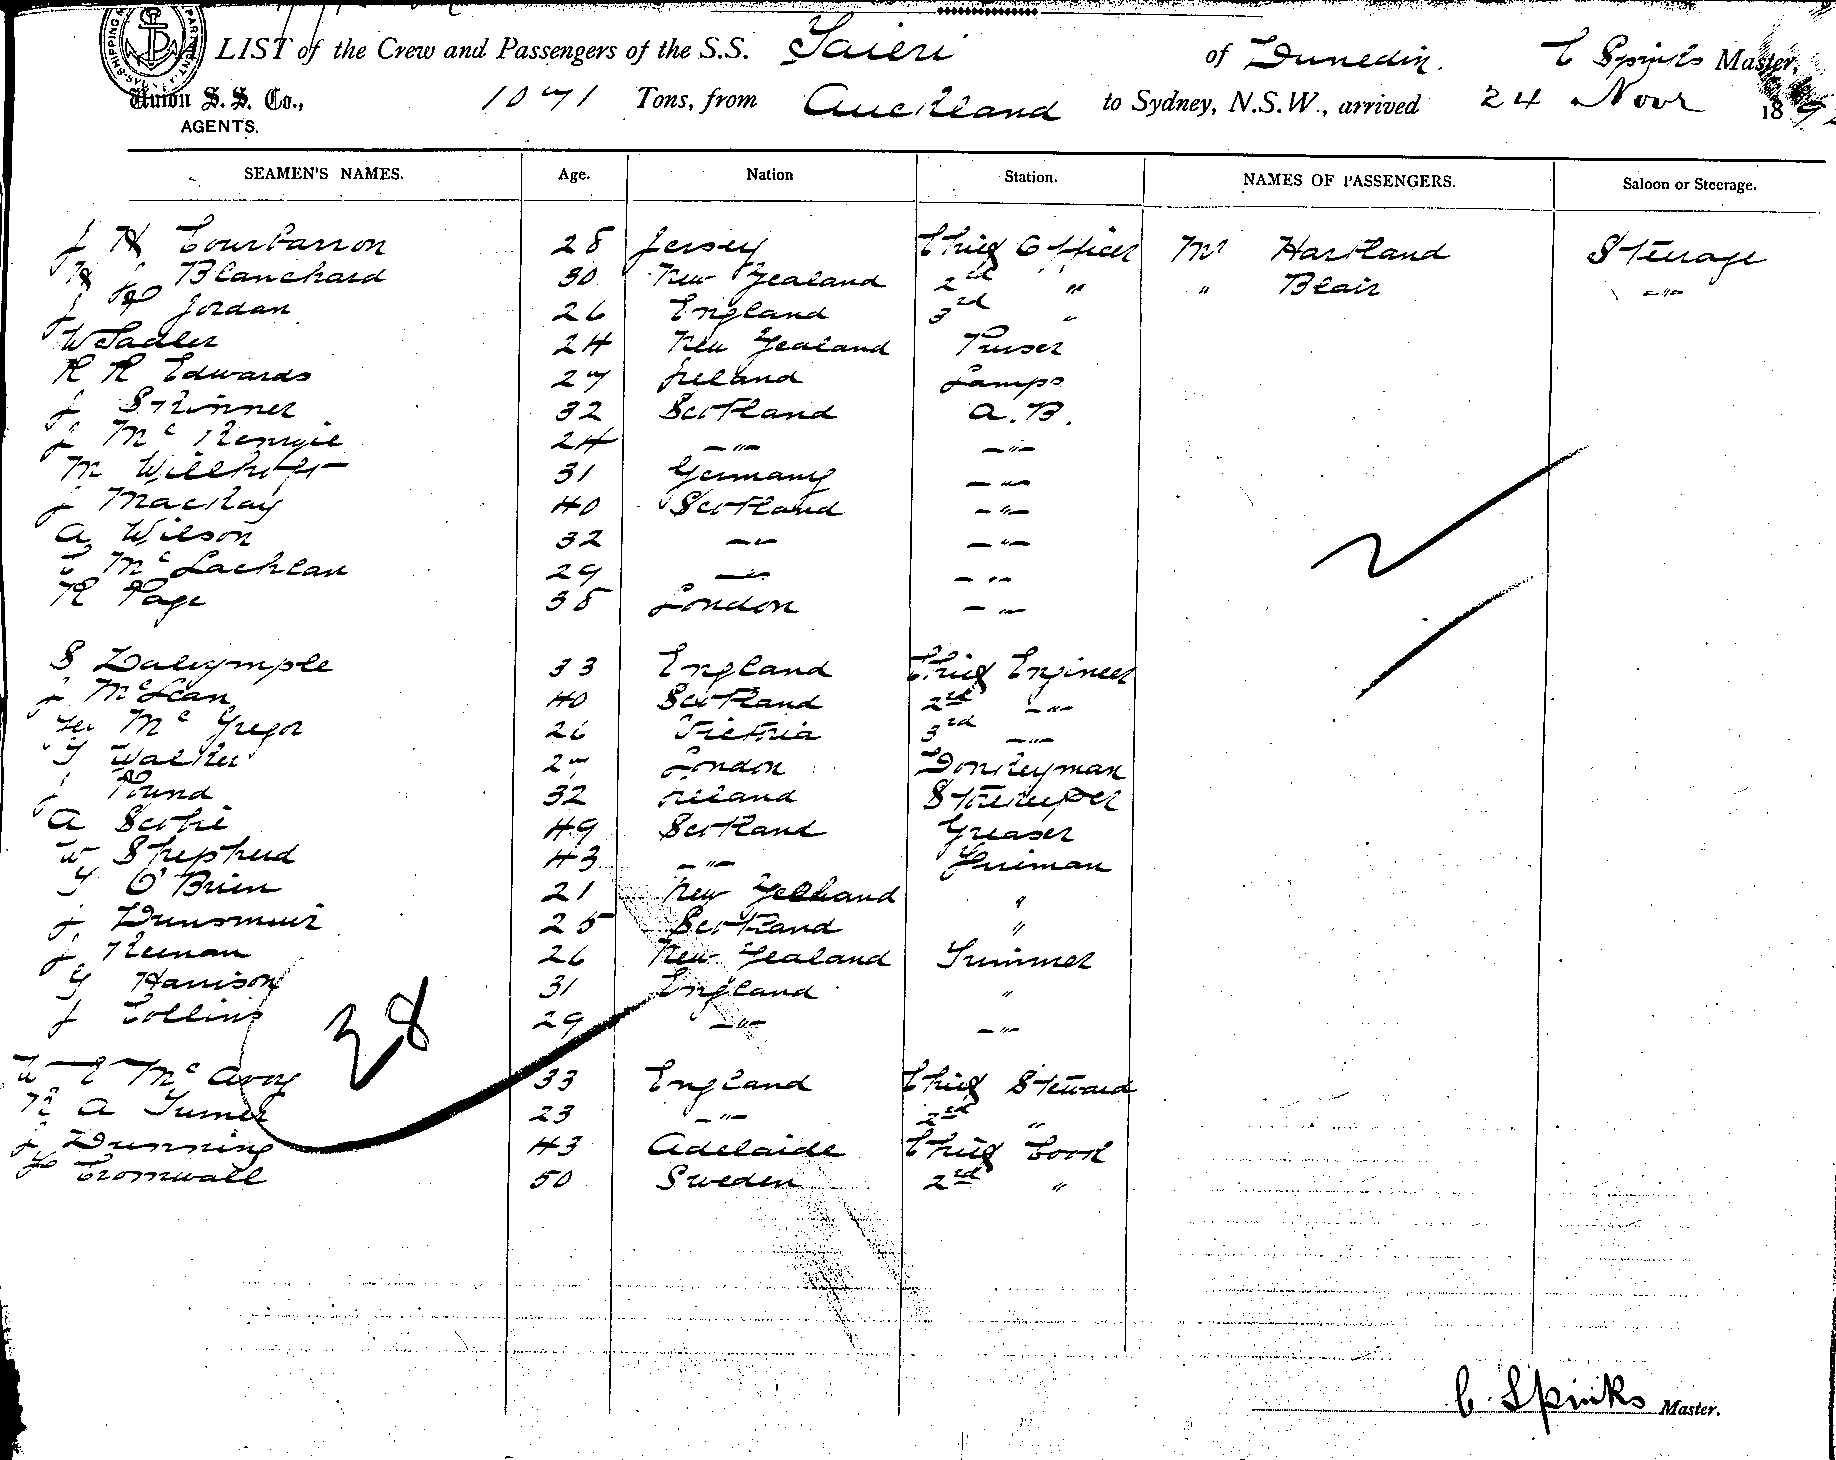 LIST of the Crew and Passengers of the S.S. Taieri of Dunedin. C Spinks Master,
Union S. S. Co., AGENTS. 1071 Tons, from Auckland to Sydney, N.S.W., arrived 24 Novr 189
SEAMEN'S NAMES. Age. Nation Station. NAMES OF PASSENGERS. Saloon or Steerage.
J H Courbarron 28 Jersey Chief Officer Mr Hartland Steerage
Blanchard 30 New Zealand 2nd " " Blair -"-
J Jordan 26 England 3rd "
W Sadler 24 New Zealand Purser
R R Edwards 27 Ireland Lamps
J Skinner 32 Scotland A.B.
J McKenzie 24 -"- -"-
M Willhoft 31 Germany -"-
J Mackay 40 Scotland -"-
A Wilson 32 -"- -"-
McLachlan 29 -"- -"-
R Page 38 London -"-
S Dalrymple 33 England Chief Engineer
J McLean 40 Scotland 2nd -"-
McGregor 26 Victoria 3rd -"-
T Walker 27 London Donkeyman
J Pound 32 Ireland Storekeeper
A Scobie 49 Scotland Greaser
W Shepherd 43 -"- Fireman
T O'Brien 21 New Zealand "
J Dunsmuir 25 Scotland "
J Keenan 26 New Zealand Trimmer
G Harrison 31 England "
J Collins 29 -"- -"-
28
W C McAvoy 33 England Chief Steward
R A Turner 23 -"- 2nd "
J Dunning 43 Adelaide Chief Cook
Cromwall 50 Sweden 2nd "
C. Spinks Master.